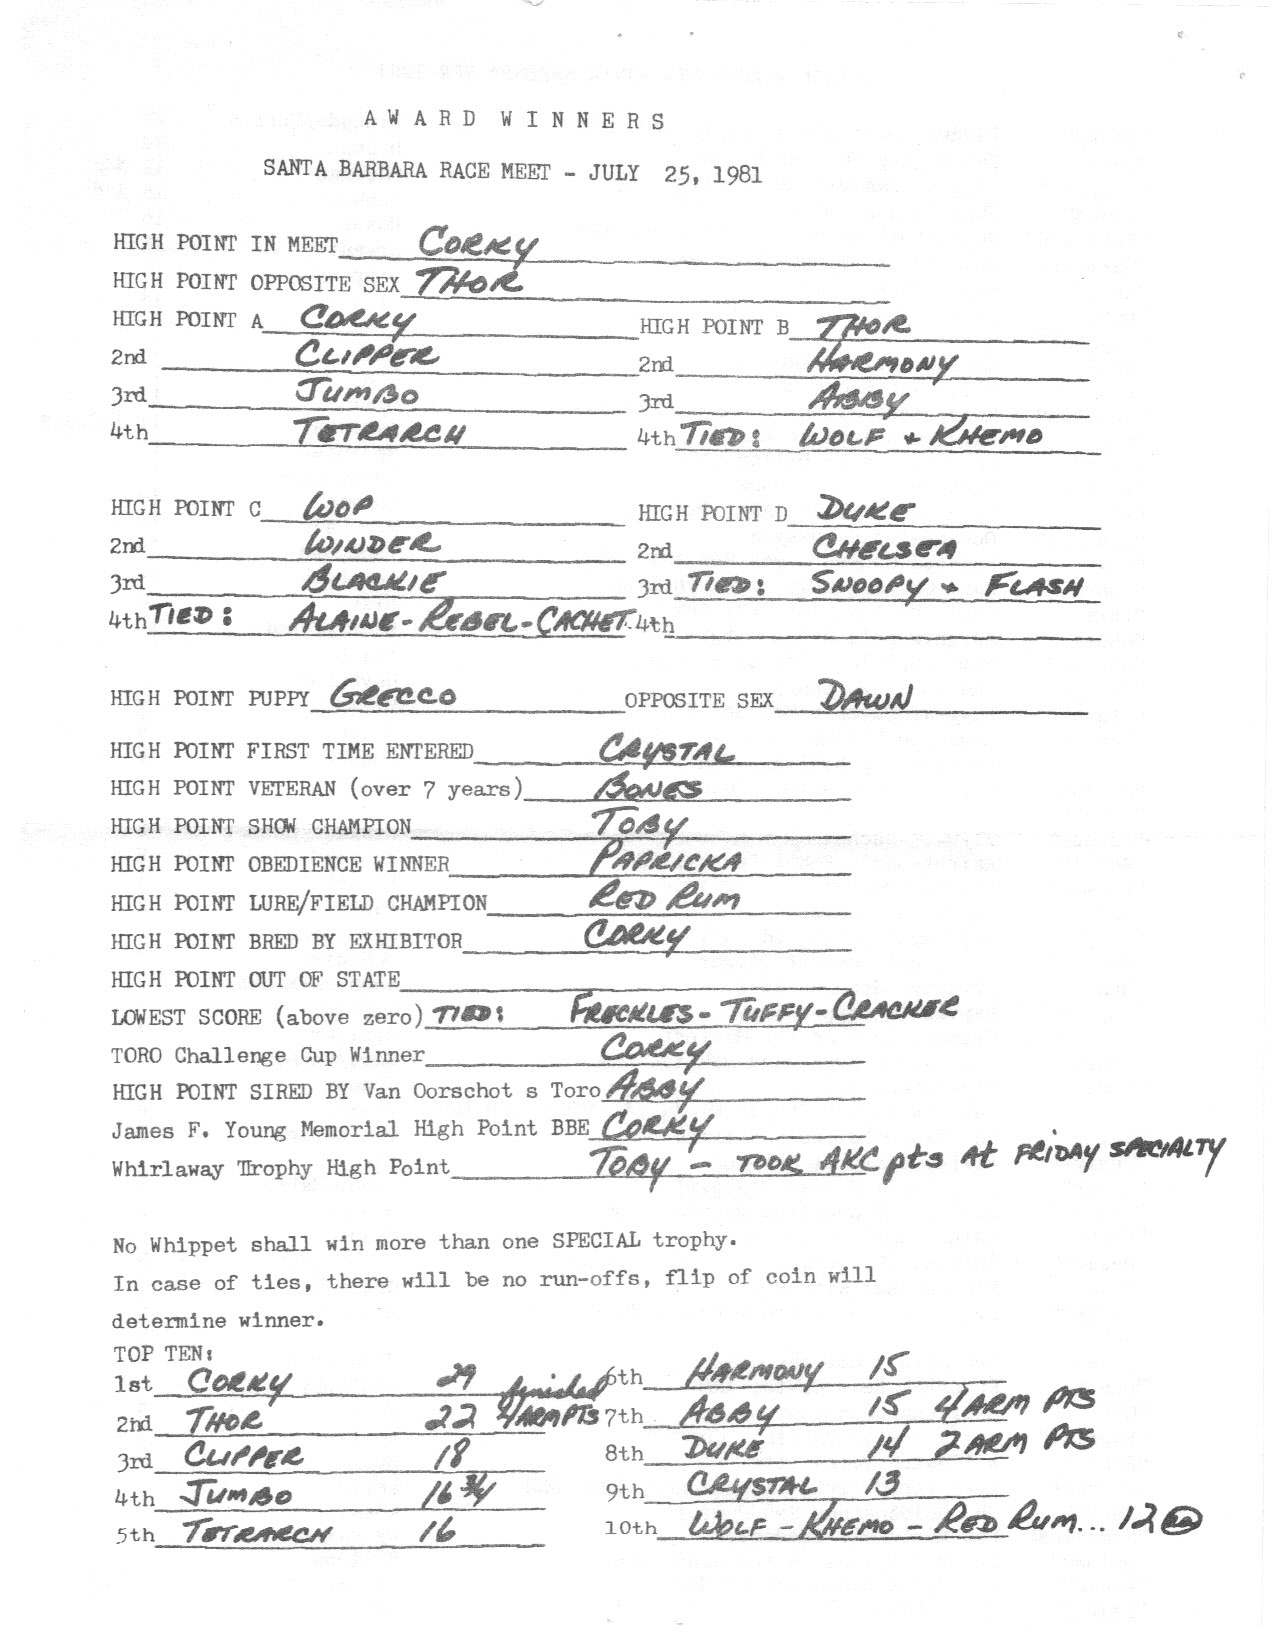 AWARD WINNERS
SANTA BARBARA RACE MEET - JULY 25, 1981
HIGH POINT IN MEET CORKY
HIGH POINT OPPOSITE SEX THOR
HIGH POINT A CORKY HIGH POINT B THOR
2nd CLIPPER 2nd HARMONY
3rd JUMBO 3rd ABBY
4th TETRARCH 4th TIED: WOLF + KHEMO
HIGH POINT C WOP HIGH POINT D DUKE
2nd WINDER 2nd CHELSEA
3rd BLACKIE 3rd TIED: SNOOPY + FLASH
4th TIED: ALAINE - REBEL - CACHET 4th
HIGH POINT PUPPY GRECCO OPPOSITE SEX DAWN
HIGH POINT FIRST TIME ENTERED CRYSTAL
HIGH POINT VETERAN (over 7 years) BONES
HIGH POINT SHOW CHAMPION TOBY
HIGH POINT OBEDIENCE WINNER PAPRICKA
HIGH POINT LURE/FIELD CHAMPION RED RUM
HIGH POINT BRED BY EXHIBITOR CORKY
HIGH POINT OUT OF STATE
LOWEST SCORE (above zero) TIED: FRECKLES - TUFFY - CRACKER
TORO Challenge Cup Winner CORKY
HIGH POINT SIRED BY Van Oorschot s Toro ABBY
James F. Young Memorial High Point BBE CORKY
Whirlaway Trophy High Point TOBY - TOOK AKC pts At FRIDAY SPECIALTY
No Whippet shall win more than one SPECIAL trophy.
In case of ties, there will be no run-offs, flip of coin will
determine winner.
TOP TEN:
1st CORKY 29 finished 6th HARMONY 15
2nd THOR 22 4 ARM PTS 7th ABBY 15 4 ARM PTS
3rd CLIPPER 18 8th DUKE 14 2 ARM PTS
4th JUMBO 16 3/4 9th CRYSTAL 13
5th TETRARCH 16 10th WOLF - KHEMO - RED RUM... 12 ea